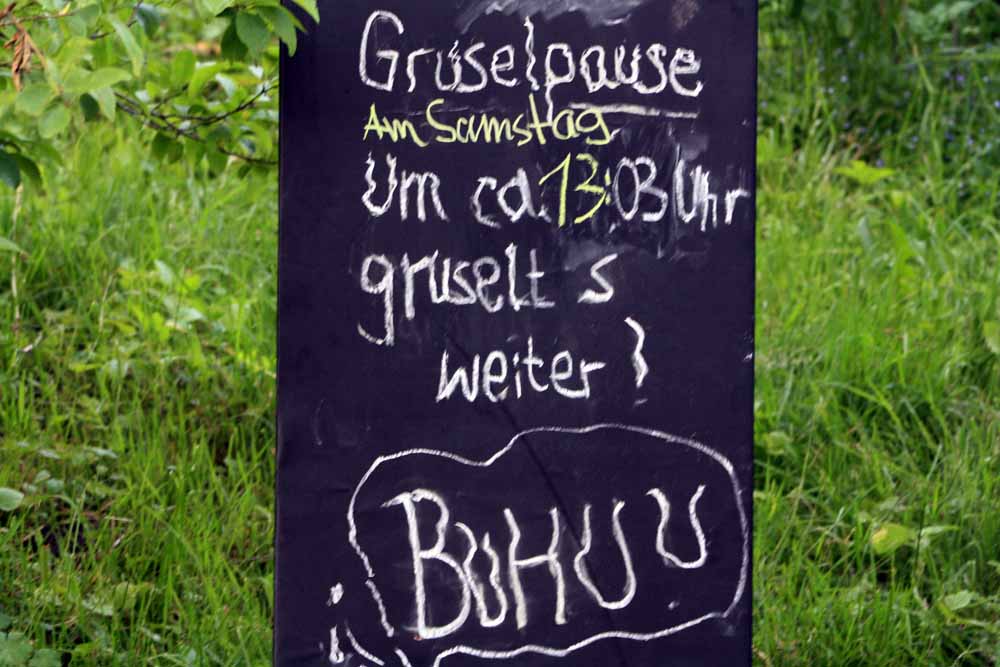 Gruselpause
Am Samstag
Um ca. 13:03 Uhr
gruselt s
weiter!
BUHUU